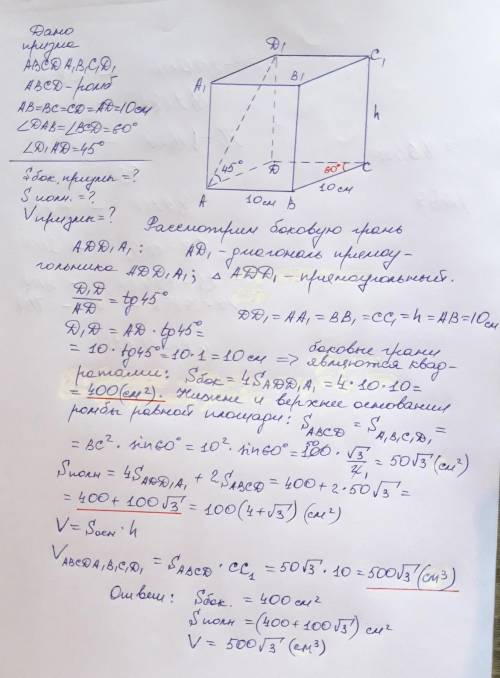 Дано
призма
ABCDA₁B₁C₁D₁
ABCD - ромб
AB=BC=CD=AD=10см
∠DAB=∠BCD=60°
∠D₁AD=45°
Sбок. призмы=?
Sполн.=?
Vпризмы=?
D₁
C₁
A₁
B₁
h
45°
D
60°
C
A
10см
B
10см
Рассмотрим боковую грань
ADD₁A₁: AD₁ - диагональ прямоу-
гольника ADD₁A₁; △ADD₁ - прямоугольный.
D₁D/AD = tg45°
D₁D = AD · tg45° =
DD₁ = AA₁ = BB₁ = CC₁ = h = AB = 10см
= 10 · tg45° = 10 · 1 = 10 см ⇒ боковые грани
являются квад-
ратами: Sбок = 4S ADD₁A₁ = 4 · 10 · 10 =
= 400 (см²). Нижнее и верхнее основания
ромбы равной площади: S ABCD = S A₁B₁C₁D₁ =
= BC² · sin60° = 10² · sin60° = 100 · √3/2 = 50√3 (см²)
50
1
Sполн = 4S ADD₁A₁ + 2S ABCD = 400 + 2 · 50√3 =
= 400 + 100√3 = 100(4+√3) (см²)
V = Sосн · h
V ABCDA₁B₁C₁D₁ = S ABCD · CC₁ = 50√3 · 10 = 500√3 (см³)
Ответ: Sбок. = 400 см²
Sполн = (400+100√3) см²
V = 500√3 (см³)